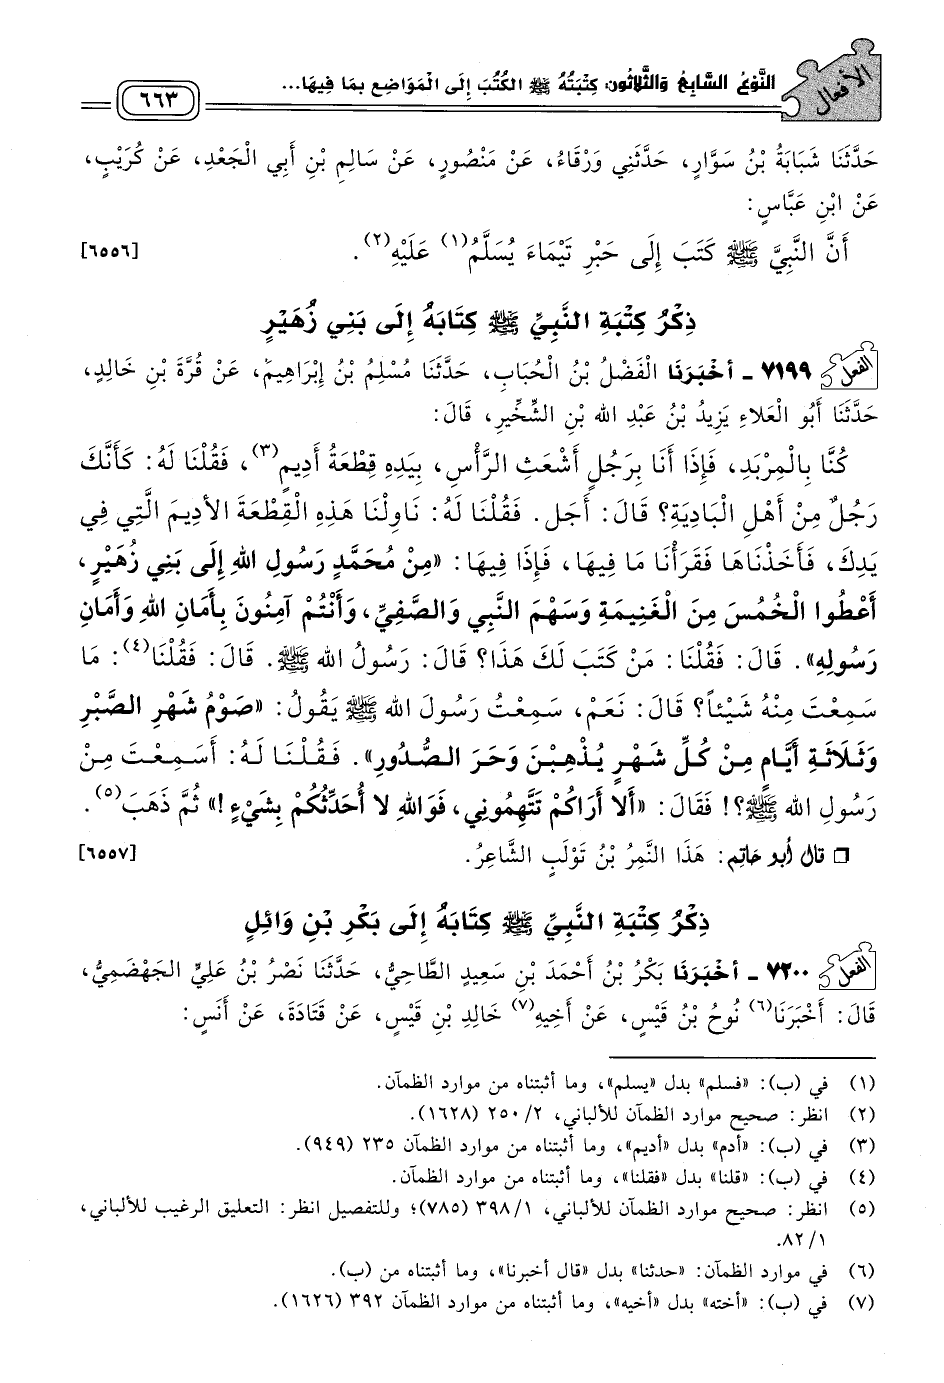 الأفعال
النَّوْعُ السَّابِعُ وَالثَّلاثُون: كِتْبَتُهُ ﷺ الكُتُبَ إِلَى الْمَوَاضِعِ بِمَا فِيهَا...
٦٦٣
حَدَّثَنَا شَبَابَةُ بْنُ سَوَّارٍ، حَدَّثَنِي وَرْقَاءُ، عَنْ مَنْصُورٍ، عَنْ سَالِمِ بْنِ أَبِي الْجَعْدِ، عَنْ كُرَيْبٍ،
عَنْ ابْنِ عَبَّاسٍ:
أَنَّ النَّبِيَّ ﷺ كَتَبَ إِلَى حَبْرِ تَيْمَاءَ يُسَلِّمُ(١) عَلَيْهِ(٢). [٦٥٥٦]
ذِكْرُ كِتْبَةِ النَّبِيِّ ﷺ كِتَابَهُ إِلَى بَنِي زُهَيْرٍ
الفعل ٧١٩٩ - أخْبَرَنَا الْفَضْلُ بْنُ الْحُبَابِ، حَدَّثَنَا مُسْلِمُ بْنُ إِبْرَاهِيمَ، عَنْ قُرَّةَ بْنِ خَالِدٍ،
حَدَّثَنَا أَبُو الْعَلاءِ يَزِيدُ بْنُ عَبْدِ الله بْنِ الشِّخِّيرِ، قَالَ:
كُنَّا بِالْمِرْبَدِ، فَإِذَا أَنَا بِرَجُلٍ أَشْعَثِ الرَّأْسِ، بِيَدِهِ قِطْعَةُ أَدِيمٍ(٣)، فَقُلْنَا لَهُ: كَأَنَّكَ
رَجُلٌ مِنْ أَهْلِ الْبَادِيَةِ؟ قَالَ: أَجَل. فَقُلْنَا لَهُ: نَاوِلْنَا هَذِهِ الْقِطْعَةَ الأدِيمَ الَّتِي فِي
يَدِكَ، فَأَخَذْنَاهَا فَقَرَأْنَا مَا فِيهَا، فَإِذَا فِيهَا: «مِنْ مُحَمَّدٍ رَسُولِ اللهِ إِلَى بَنِي زُهَيْرٍ،
أَعْطُوا الْخُمُسَ مِنَ الْغَنِيمَةِ وَسَهْمَ النَّبِي وَالصَّفِيِّ، وَأَنْتُمْ آمِنُونَ بِأَمَانِ اللهِ وَأَمَانِ
رَسُولِهِ». قَالَ: فَقُلْنَا: مَنْ كَتَبَ لَكَ هَذَا؟ قَالَ: رَسُولُ الله ﷺ. قَالَ: فَقُلْنَا(٤): مَا
سَمِعْتَ مِنْهُ شَيْئاً؟ قَالَ: نَعَمْ، سَمِعْتُ رَسُولَ الله ﷺ يَقُولُ: «صَوْمُ شَهْرِ الصَّبْرِ
وَثَلَاثَةِ أَيَّامٍ مِنْ كُلِّ شَهْرٍ يُذْهِبْنَ وَحَرَ الصُّدُورِ». فَقُلْنَا لَهُ: أَسَمِعْتَ مِنْ
رَسُولِ الله ﷺ؟! فَقَالَ: «أَلا أَرَاكُمْ تَتَّهِمُونِي، فَوَاللهِ لا أُحَدِّثُكُمْ بِشَيْءٍ!» ثُمَّ ذَهَبَ(٥).
❑ قال أبو حاتِم: هَذَا النَّمِرُ بْنُ تَوْلَبٍ الشَّاعِرُ. [٦٥٥٧]
ذِكْرُ كِتْبَةِ النَّبِيِّ ﷺ كِتَابَهُ إِلَى بَكْرِ بْنِ وَائِلٍ
الفعل ٧٢٠٠ - أخْبَرَنَا بَكْرُ بْنُ أَحْمَدَ بْنِ سَعِيدٍ الطَّاحِيُّ، حَدَّثَنَا نَصْرُ بْنُ عَلِيٍّ الجَهْضَمِيُّ،
قَالَ: أَخْبَرَنَا(٦) نُوحُ بْنُ قَيْسٍ، عَنْ أَخِيهِ(٧) خَالِدِ بْنِ قَيْسٍ، عَنْ قَتَادَةَ، عَنْ أَنَسٍ:
(١) في (ب): «فسلم» بدل «يسلم»، وما أثبتناه من موارد الظمآن.
(٢) انظر: صحيح موارد الظمآن للألباني، ٢/ ٢٥٠ (١٦٢٨).
(٣) في (ب): «أدم» بدل «أديم»، وما أثبتناه من موارد الظمآن ٢٣٥ (٩٤٩).
(٤) في (ب): «قلنا» بدل «فقلنا»، وما أثبتناه من موارد الظمآن.
(٥) انظر: صحيح موارد الظمآن للألباني، ١/ ٣٩٨ (٧٨٥)؛ وللتفصيل انظر: التعليق الرغيب للألباني،
١/ ٨٢.
(٦) في موارد الظمآن: «حدثنا» بدل «قال أخبرنا»، وما أثبتناه من (ب).
(٧) في (ب): «أخته» بدل «أخيه»، وما أثبتناه من موارد الظمآن ٣٩٢ (١٦٢٦).